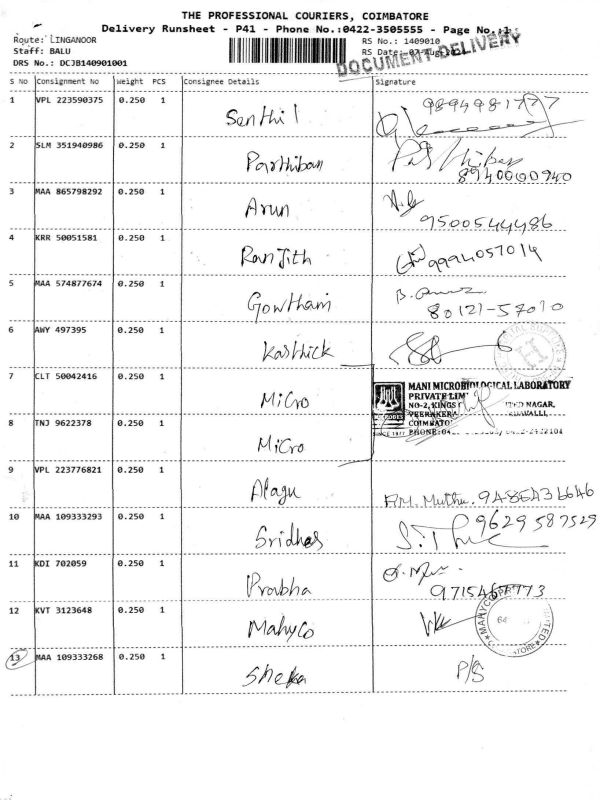 THE PROFESSIONAL COURIERS, COIMBATORE
Delivery Runsheet - P41 - Phone No.:0422-3505555 - Page No.:1
Route: LINGANOOR RS No.: 1409010
Staff: BALU RS Date:
DRS No.: DCJB140901001
DOCUMENT DELIVERY
S No Consignment No Weight PCS Consignee Details Signature
1 VPL 223590375 0.250 1 Senthil
2 SLM 351940986 0.250 1 Parthiban 8940000940
3 MAA 865798292 0.250 1 Arun 9500544486
4 KRR 50051581 0.250 1 Ranjith 9994057014
5 MAA 574877674 0.250 1 Gowtham 80121-57010
6 AWY 497395 0.250 1 Karthick
7 CLT 50042416 0.250 1 Micro
MANI MICROBIOLOGICAL LABORATORY
PRIVATE
NO-2, KINGS NAGAR,
COIMBATO
SINCE 1977 PHONE:
8 TNJ 9622378 0.250 1 Micro
9 VPL 223776821 0.250 1 Alagu
10 MAA 109333293 0.250 1 Sridhar 9629587529
11 KDI 702059 0.250 1 Prabha
12 KVT 3123648 0.250 1 Mahyco
13 MAA 109333268 0.250 1 P/S